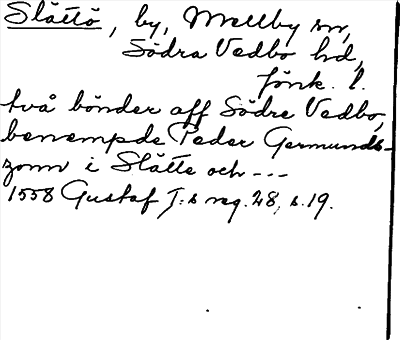 Slättö, by, Mellby sn,
Södra Vedbo hd,
Jönk. l.
två bönder aff Södre Vedbo,
benempde Peder Germunds-
zonn i Slätte och ---
1558 Gustaf I:s reg. 28, s. 19.